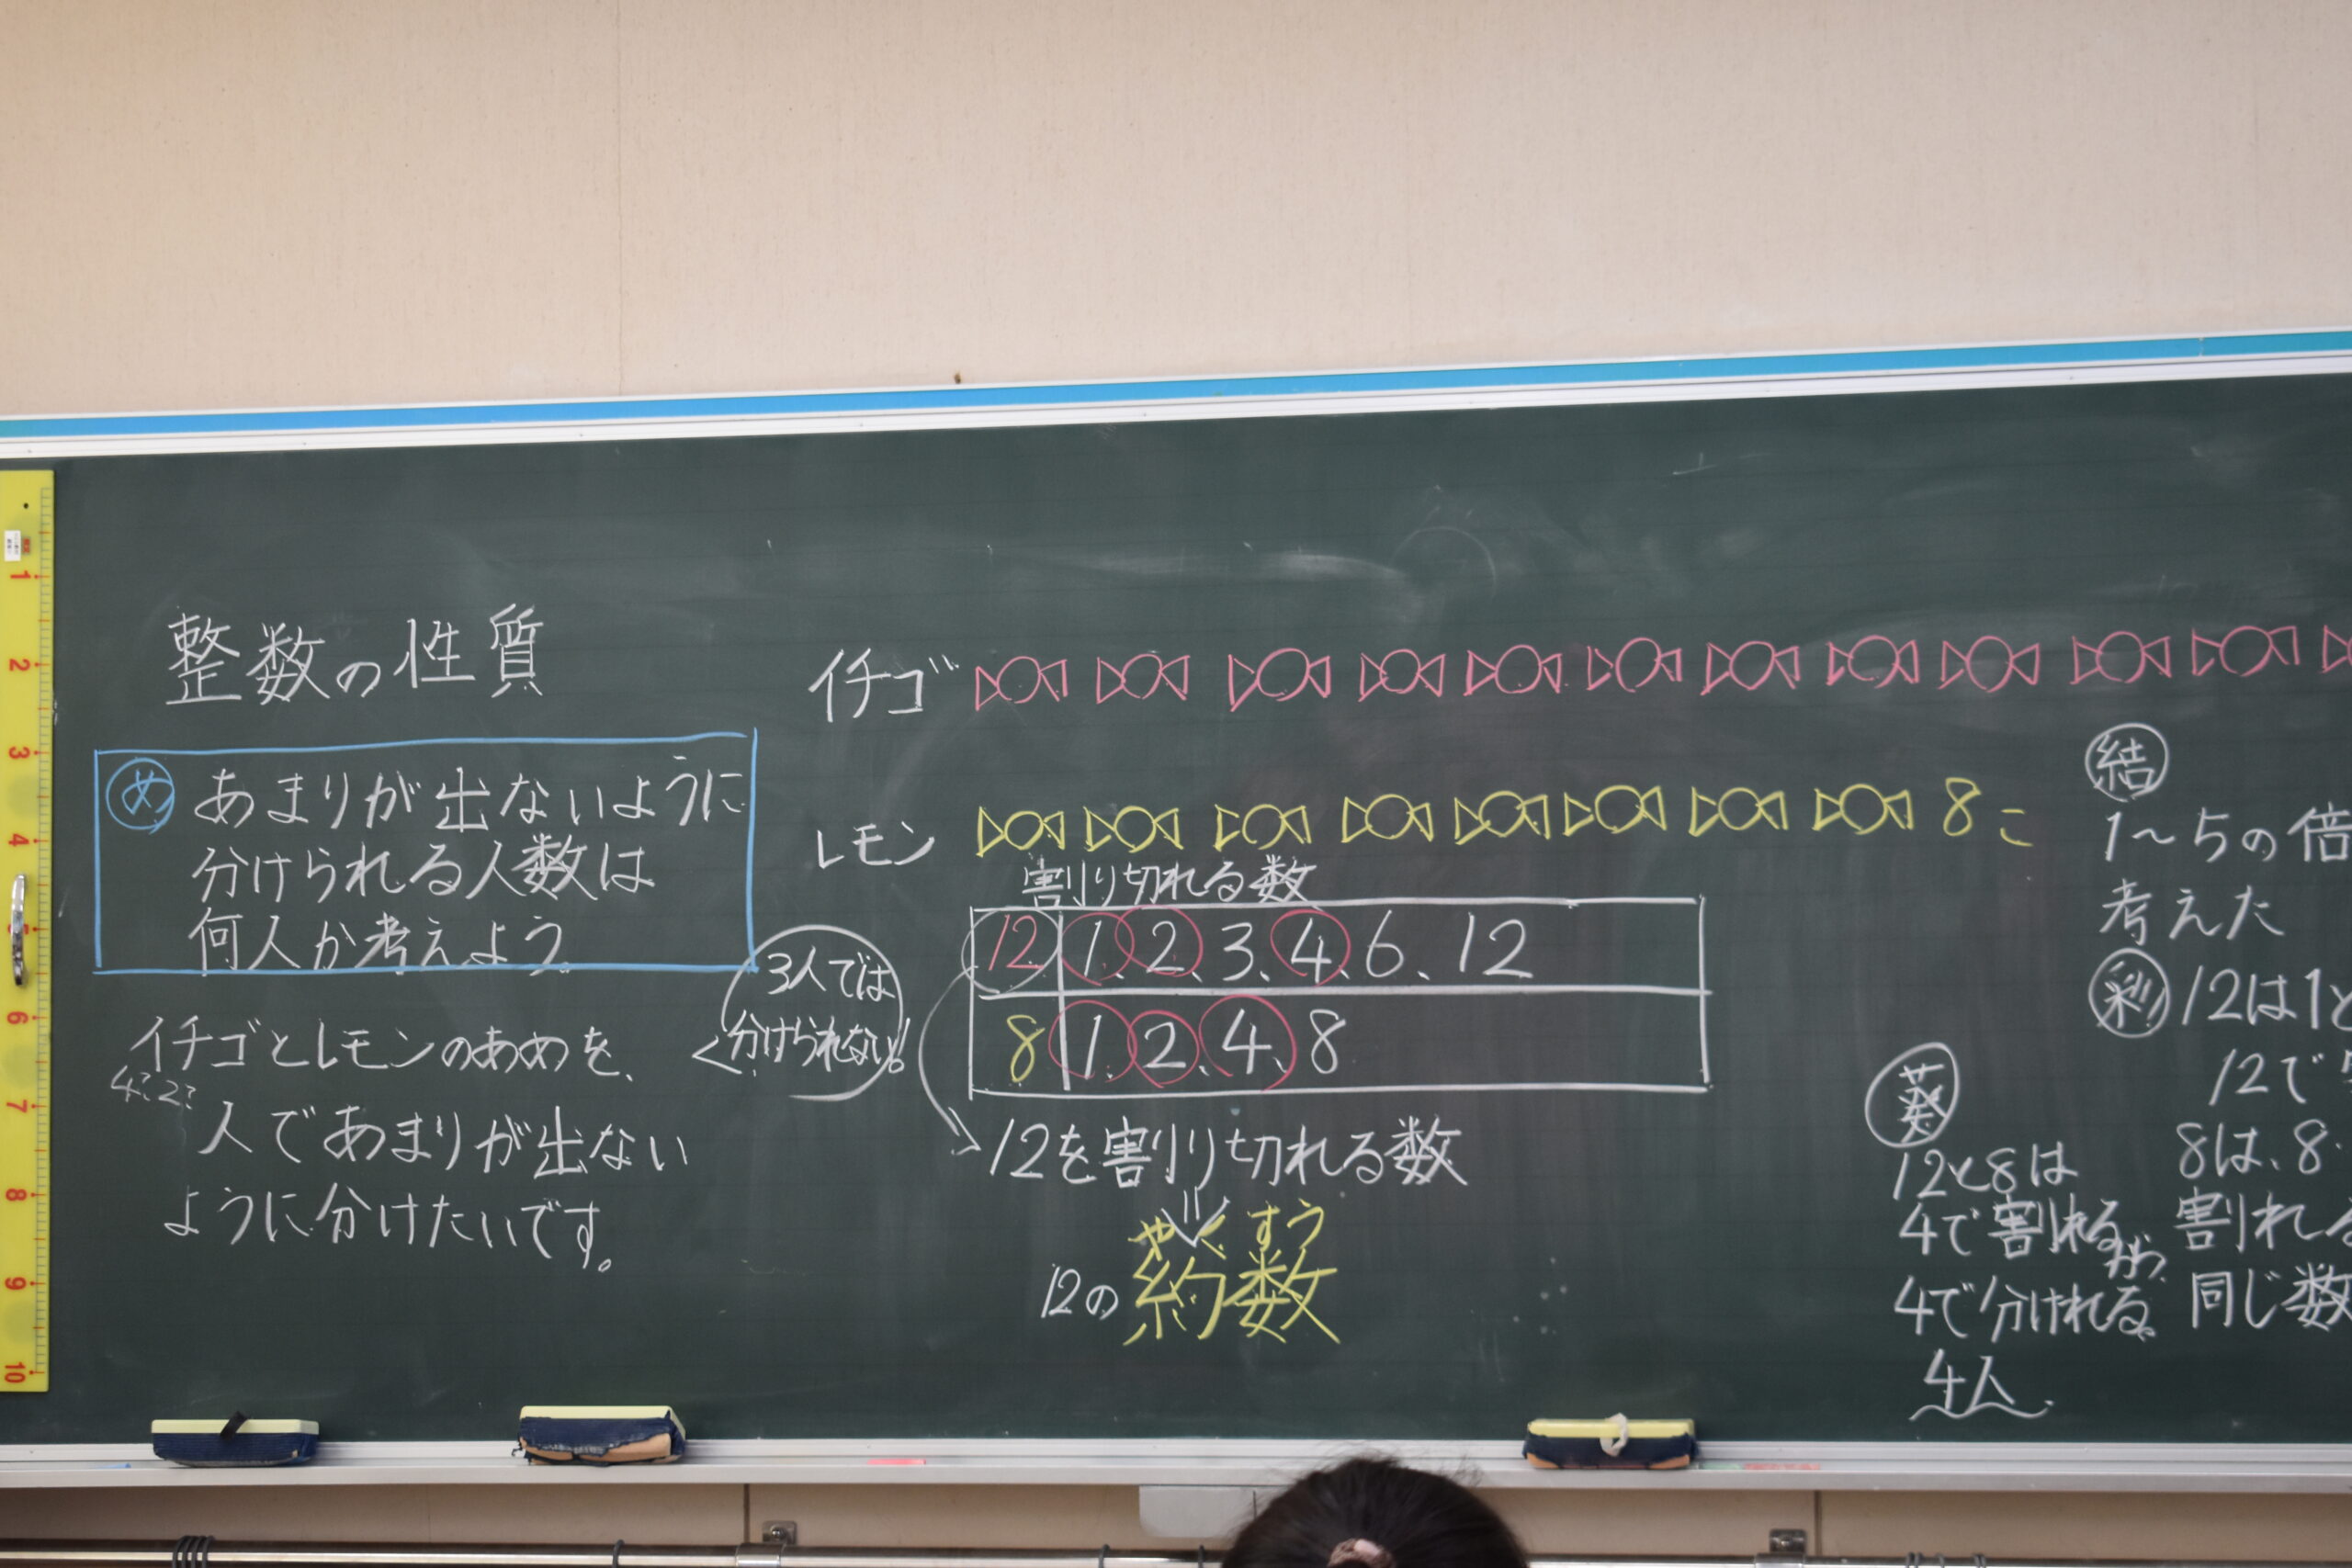 整数の性質
め あまりが出ないように
分けられる人数は
何人か考えよう
イチゴとレモンのあめを、
4?2?
人であまりが出ない
ように分けたいです。
イチゴ
レモン 8こ
割り切れる数
12 1、2、3、4、6、12
8 1、2、4、8
3人では
分けられない!
12を割り切れる数
やくすう
12の約数
結
1〜5の倍
考えた
12は1と
12で
8は、8
割れる
同じ数
葵
12と8は
4で割れるが、
4で分けれる
4人
1
2
3
4
5
6
7
8
9
10